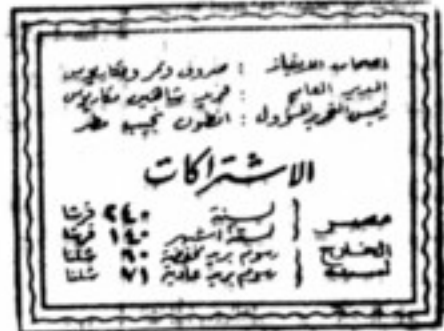 اصحاب الامتياز : صروف ونمر ومكاريوس
المدير العام : فريد شاهين مكاريوس
رئيس التحرير المسؤول : انطون نجيب مطر
الاشتراكات
مصر { لسنة ٢٤٠ قرشا
لستة اشهر ١٤٠ قرشا
الخارج { رسوم بريد مخفضة ٦٠ شلنا
لسنة رسوم بريد عادية ٧١ شلنا